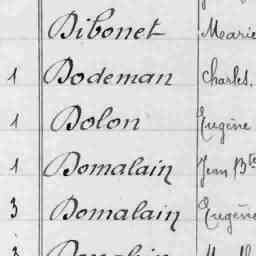 Dibonet Marie
1 Dodeman Charles.
1 Dolon Eugène
1 Domalain Jean Bte
3 Domalain Eugène